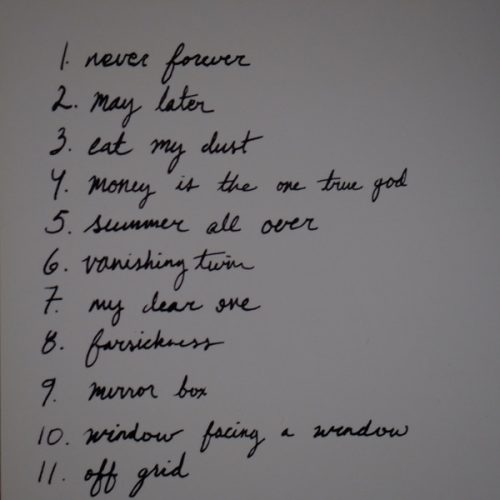 1. never forever
2. may later
3. eat my dust
4. money is the one true god
5. summer all over
6. vanishing twin
7. my dear one
8. farsickness
9. mirror box
10. window facing a window
11. off grid